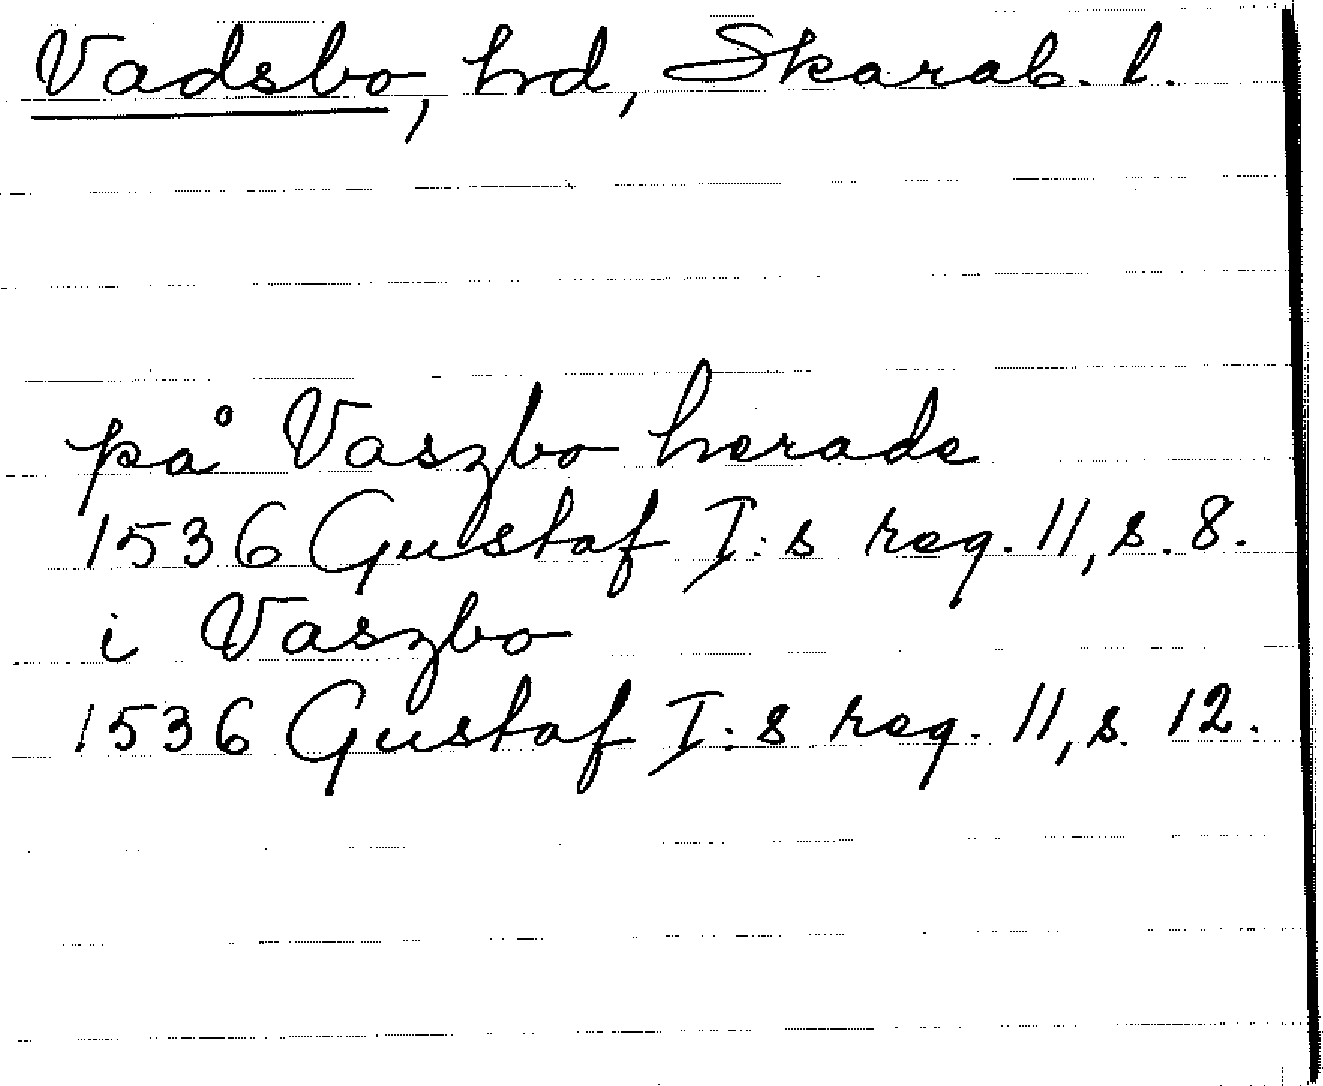 Vadsbo, hd, Skarab. l.
på Vaszbo herade
1536 Gustaf I:s reg. 11, s. 8.
i Vaszbo
1536 Gustaf I:s reg. 11, s. 12.